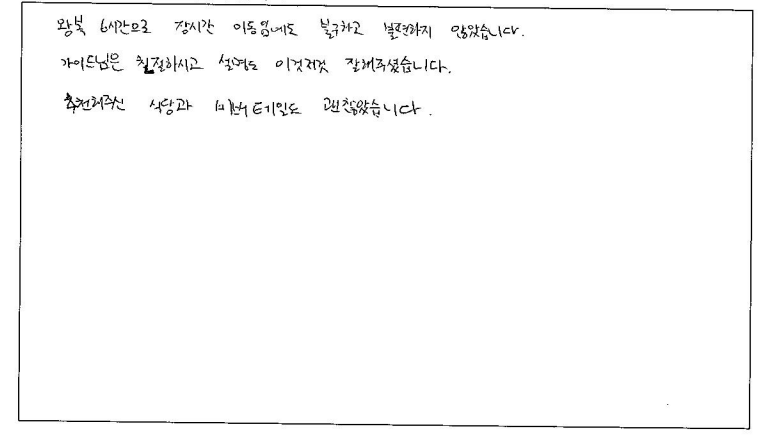 왕복 6시간으로 장시간 이동임에도 불구하고 불편하지 않았습니다.
가이드님은 친절하시고 설명도 이것저것 잘해주셨습니다.
추천해주신 식당과 비버테일도 괜찮았습니다.